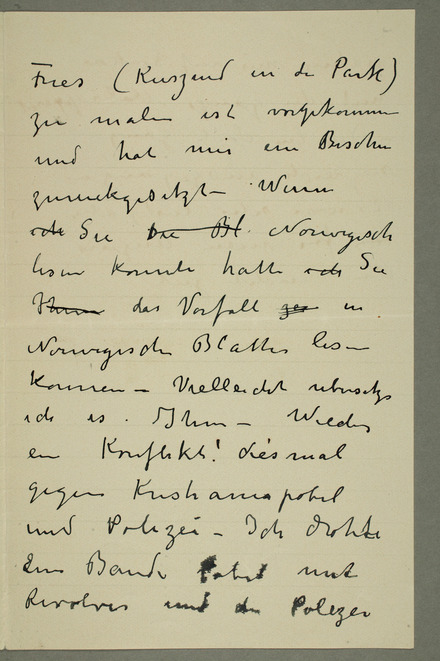 Fries (Kussend in de Park)
zu malen ist vorgekommen
und hat mir ein Bischen
zurückgesetzt – Wenn
ich Sie Die Bl. Norwegisch
lesen konnte hatte ich Sie
Ihnen das Vorfall in
Norwegische Blatter lesen
konnen – Vielleicht ubersetze
ich es. Ihnen – Wieder
ein Konflikt! diesmal
gegen Kristianiapobel
und Polizei – Ich drohte
ein Bande Pobel mit
Revolver und die Polizei